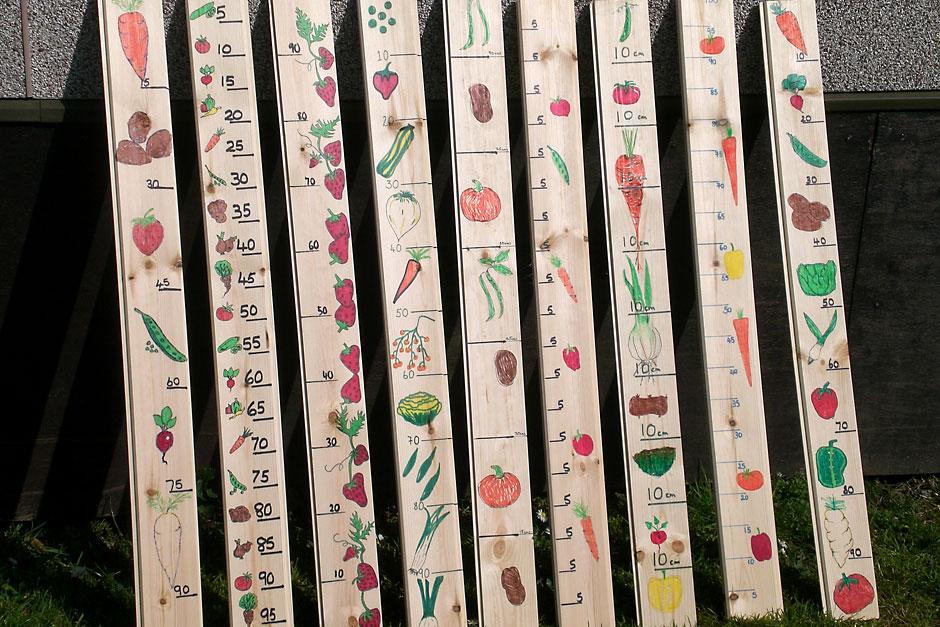 15
30
45
60
75
90
5
10
15
20
25
30
35
40
45
50
55
60
65
70
75
80
85
90
95
90
80
70
60
50
40
30
20
10
10
20
30
40
50
60
70
80
90
5
5
5
5
5
5
5
5
5
5
5
5
5
5
5
5
5
5
10cm
10cm
10cm
10cm
10cm
10cm
10cm
10cm
95
90
85
80
75
70
65
60
55
50
45
40
35
30
25
20
15
10
5
10
20
30
40
50
60
70
80
90